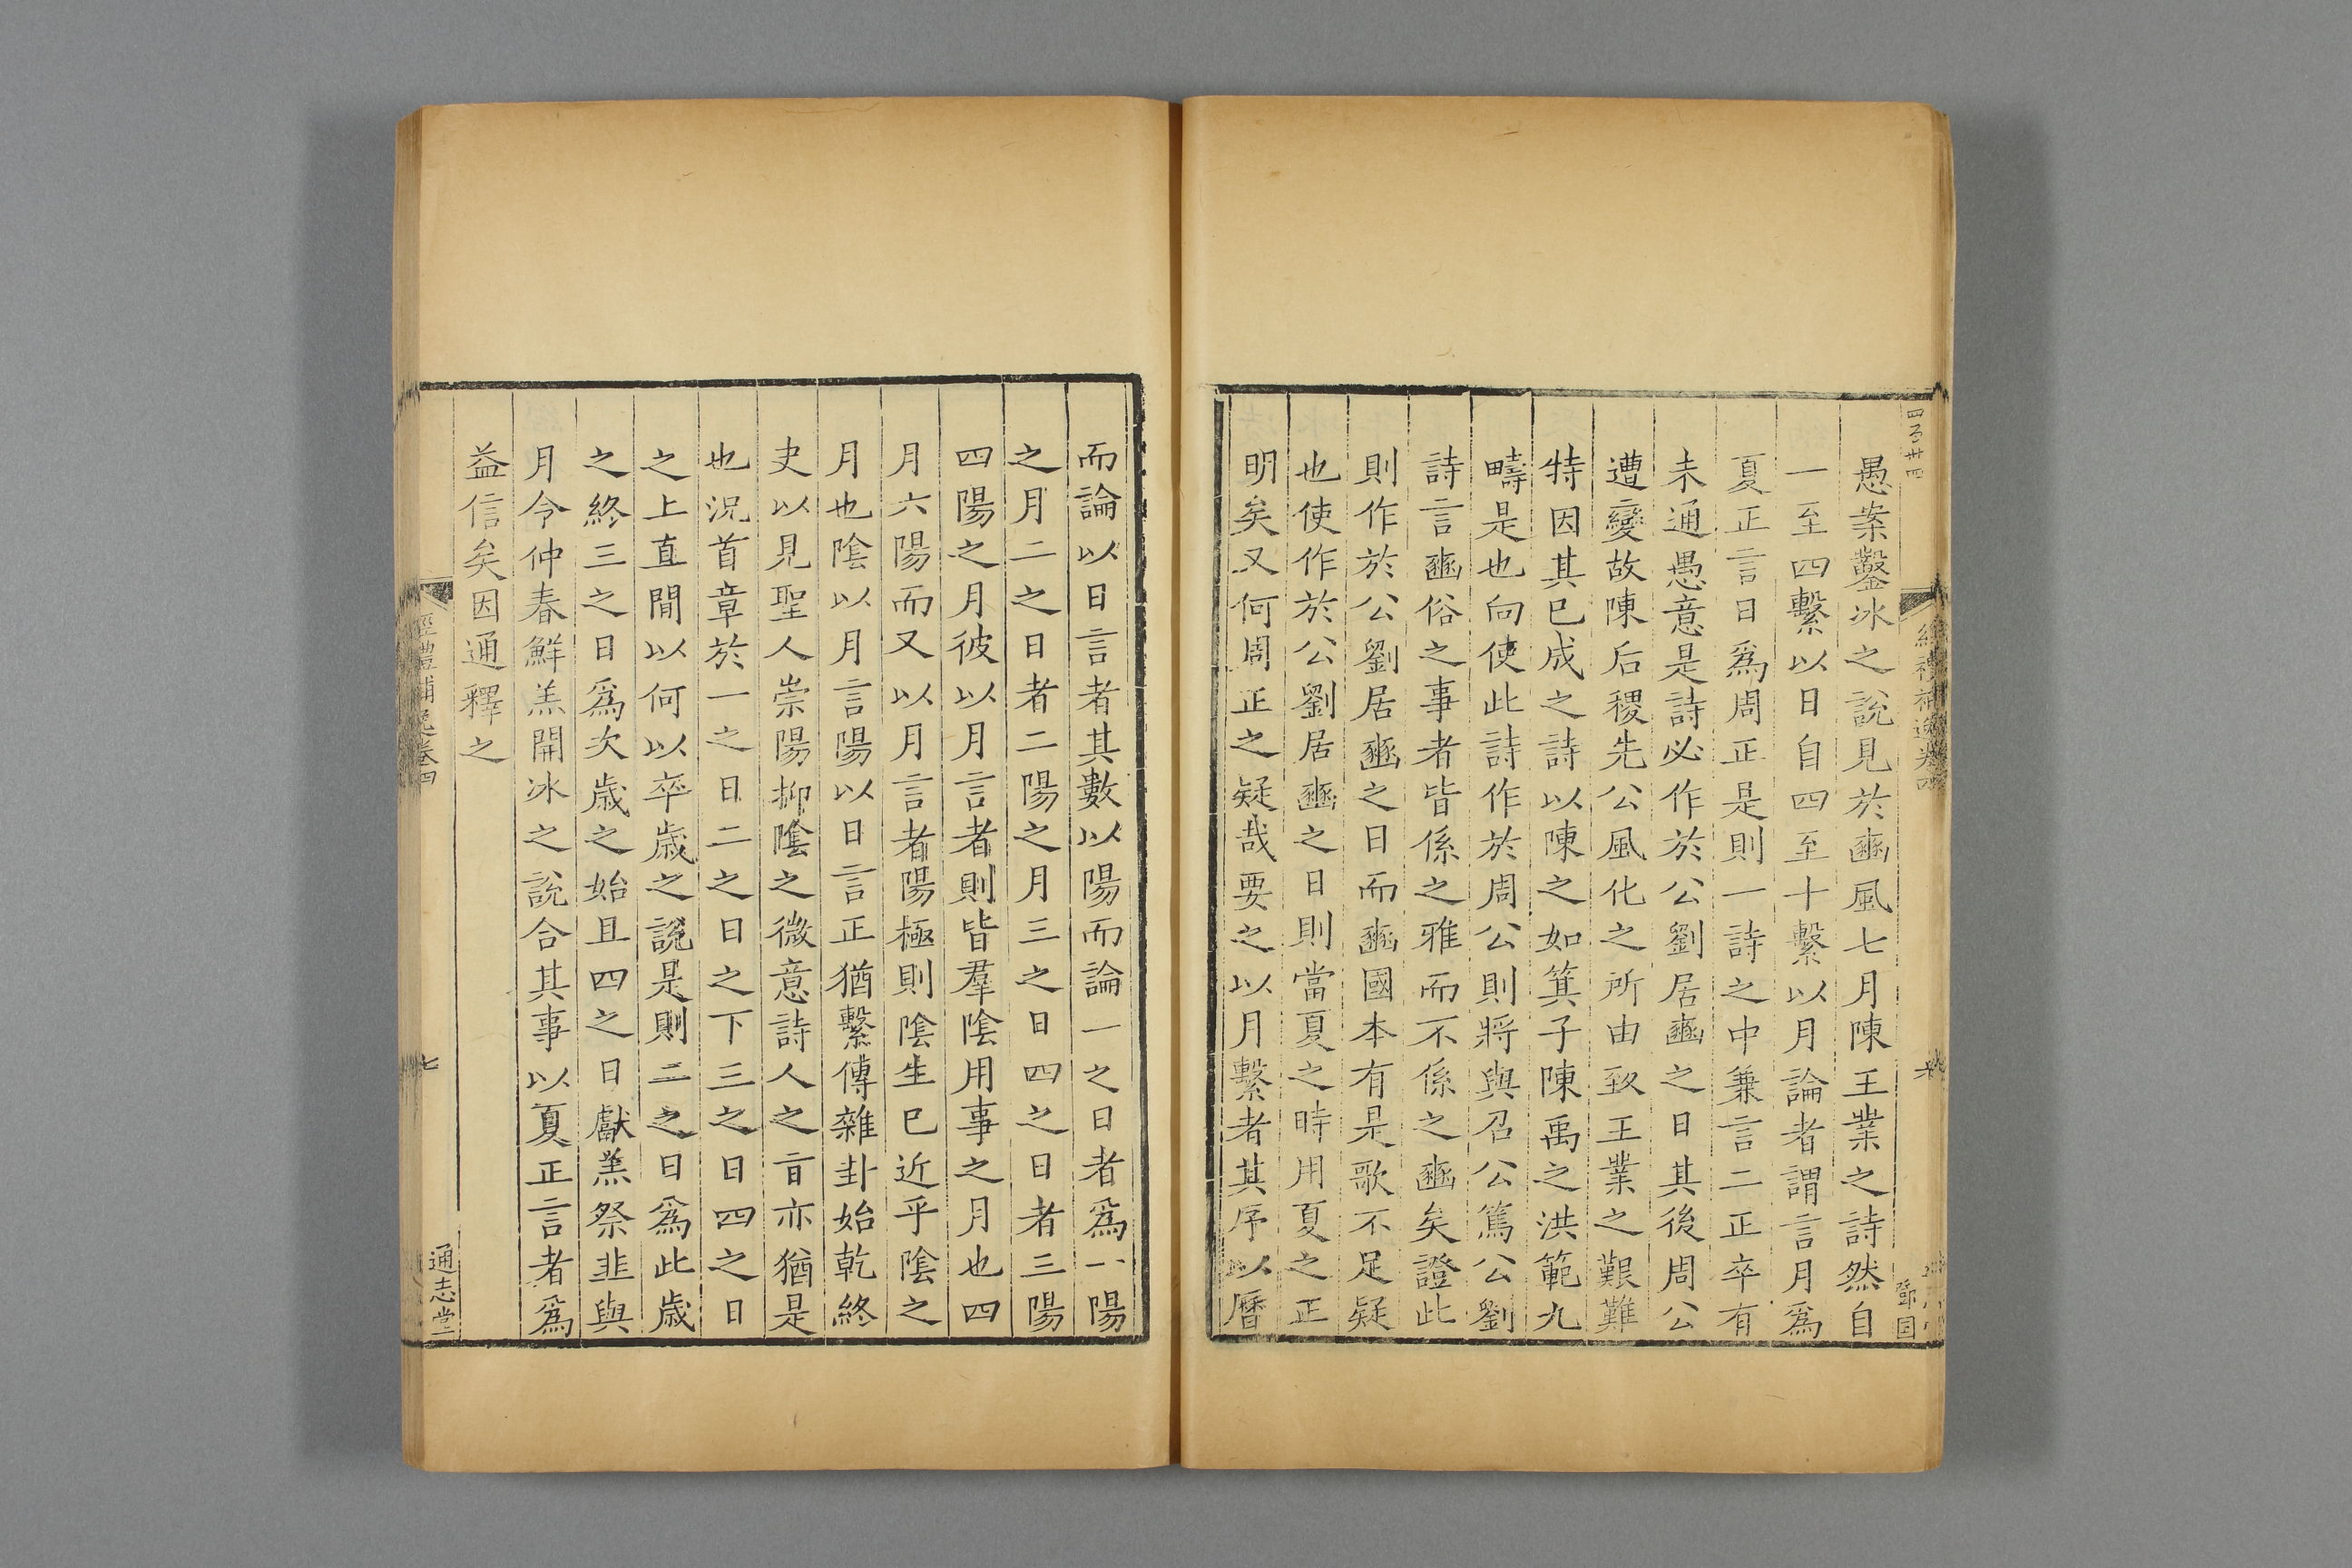 愚案鑿冰之說見於豳風七月陳王業之詩然自
一至四繫以日自四至十繫以月論者謂言月爲
夏正言日爲周正是則一詩之中兼言二正卒有
未通愚意是詩必作於公劉居豳之日其後周公
遭變故陳后稷先公風化之所由致王業之艱難
特因其已成之詩以陳之如箕子陳禹之洪範九
疇是也向使此詩作於周公則將與召公篤公劉
詩言豳俗之事者皆係之雅而不係之豳矣證此
則作於公劉居豳之日而豳國本有是歌不足疑
也使作於公劉居豳之日則當夏之時用夏之正
明矣又何周正之疑哉要之以月繫者其序以曆
而論以日言者其數以陽而論一之日者爲一陽
之月二之日者二陽之月三之日四之日者三陽
四陽之月彼以月言者則皆羣陰用事之月也四
月六陽而又以月言者陽極則陰生已近乎陰之
月也陰以月言陽以日言正猶繫傳雜卦始乾終
夬以見聖人崇陽抑陰之微意詩人之旨亦猶是
也況首章於一之日二之日之下三之日四之日
之上直閒以何以卒歲之說是則二之日爲此歲
之終三之日爲次歲之始且四之日獻羔祭韭與
月令仲春鮮羔開冰之說合其事以夏正言者爲
益信矣因通釋之
經禮補逸卷四
七
通志堂